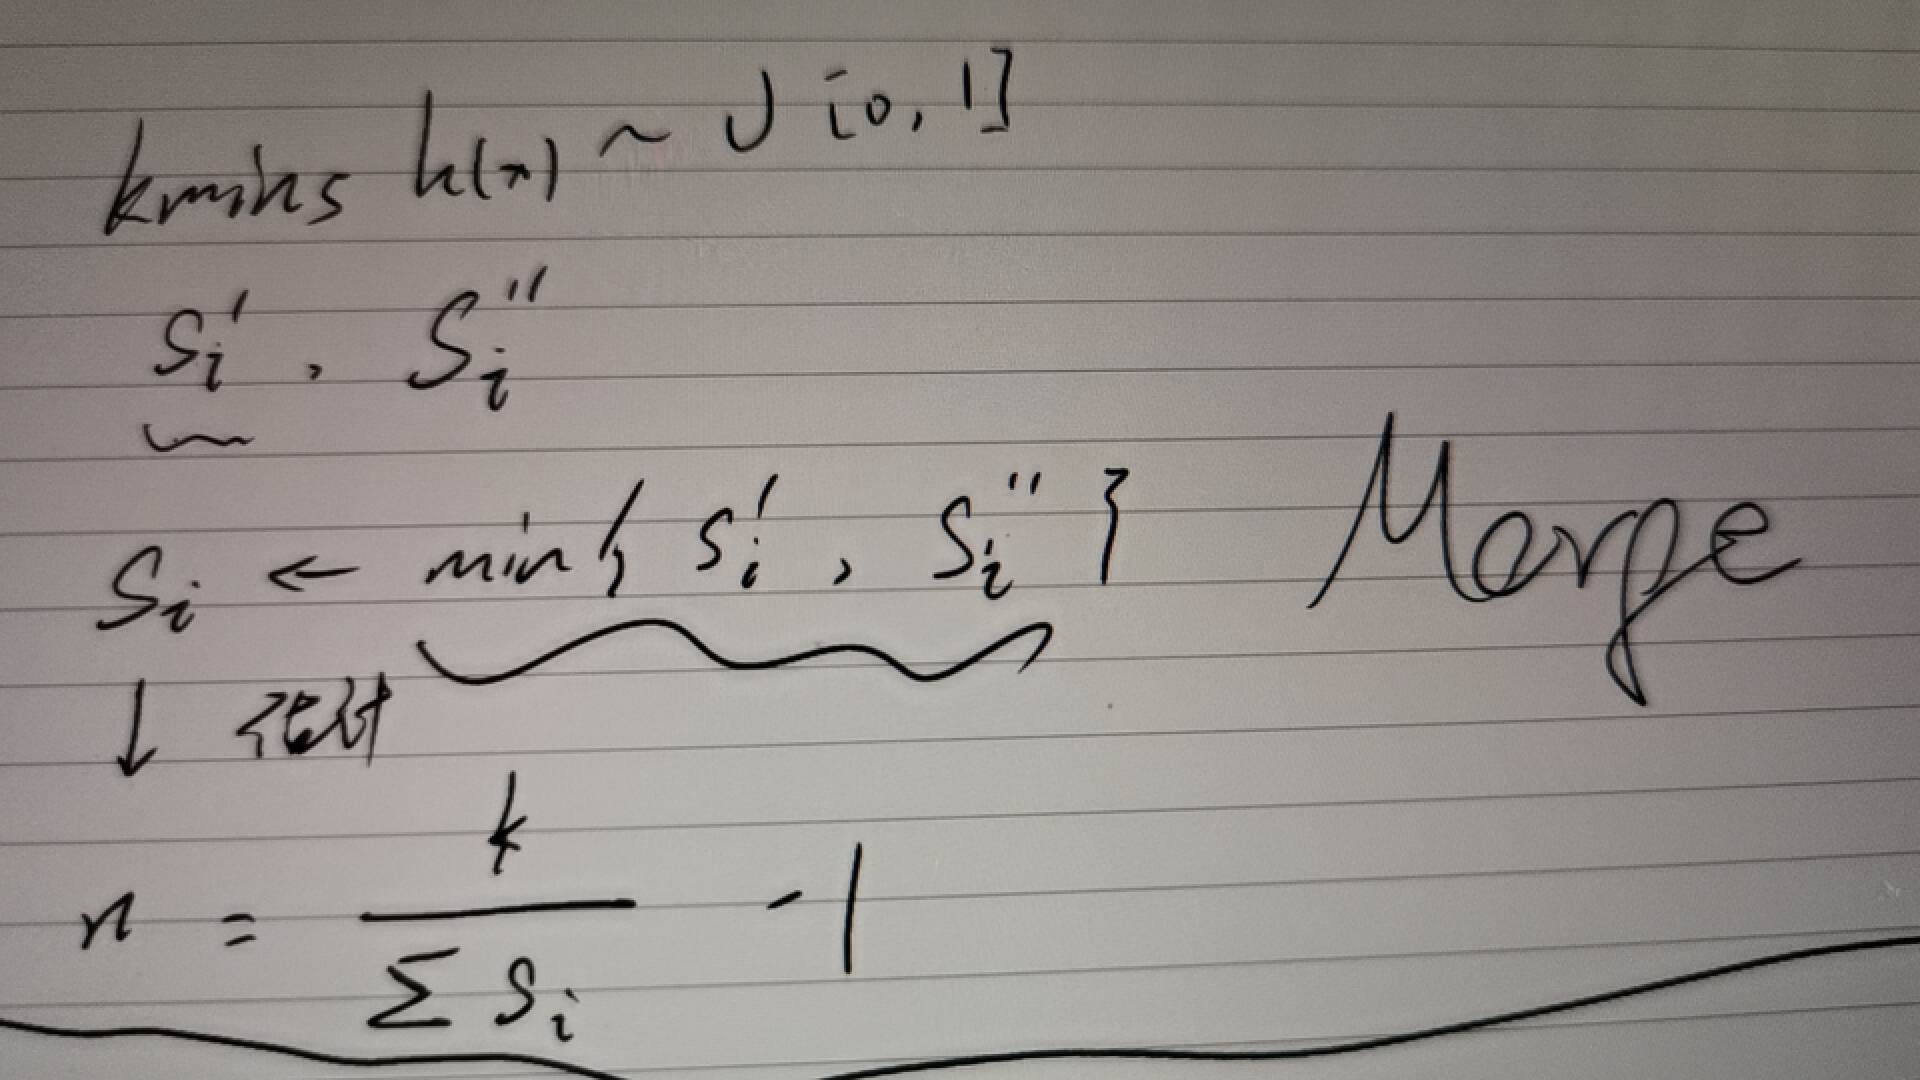 kmins h(x) ~ U [0, 1]
Si', Si''
Si ← min{ Si', Si'' } Merge
↓ 估计
n = k / Σ Si - 1